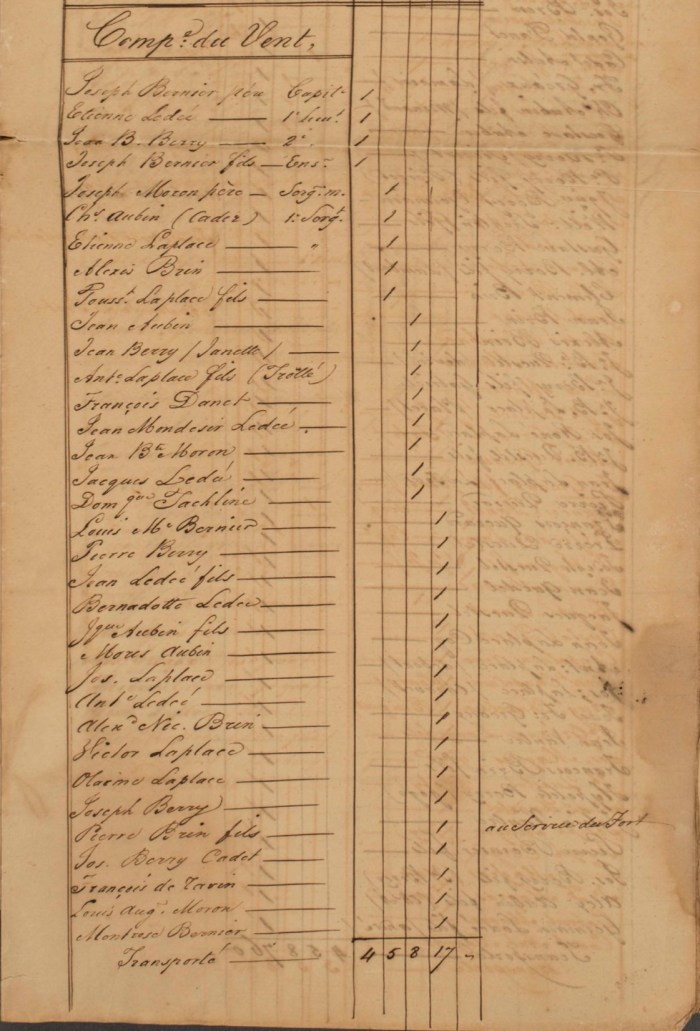 Comp.e du Vent,
Joseph Bernier père Capit.e 1
Etienne Ledée — 1.r Lieut. 1
Jean B. Berry — 2.e 1
Joseph Bernier fils — Ens.e 1
Joseph Moron père — Serg.t m. 1
Ch.s Aubin (Cadet) 1.r Serg.t 1
Etienne Laplace — " 1
Alexis Brin — 1
Touss.t Laplace fils — 1
Jean Aubin — 1
Jean Berry (Janette) — 1
Ant.e Laplace fils (Trotté) 1
François Danet — 1
Jean Mondesir Ledée — 1
Jean B.te Moron — 1
Jacques Ledée — 1
Dom.que Tackline — 1
Louis M.e Bernier — 1
Pierre Berry — 1
Jean Ledée fils — 1
Bernadotte Ledée — 1
J.que Aubin fils — 1
Mores Aubin — 1
Jos. Laplace — 1
Ant.e Ledée — 1
Alex.d Nic. Brin — 1
Victor Laplace — 1
Laplace — 1
Joseph Berry — 1
Pierre Brin fils — 1 au Service du Fort
Jos. Berry Cadet — 1
François de Tavin — 1
Louis Aug.e Moron — 1
Montrose Bernier — 1
Transporté — 4 5 8 17 "